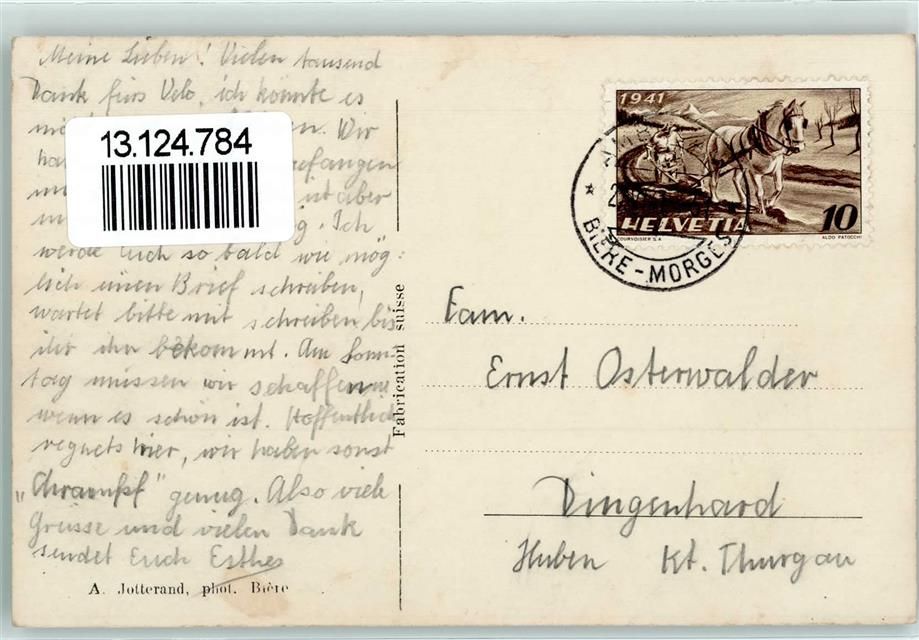 Meine Lieben! Vielen tausend
Dank fürs Velo, ich könnte es
13.124.784
Wir
aber
Ich
werde Euch so bald wie mög:
lich einen Brief schreiben,
wartet bitte mit schreiben bis
ihr ihn bekommt. Am Sonn-
tag müssen wir schaffen
wenn es schön ist. Hoffentlich
regnets hier, wir haben sonst
„Chrampf" genug. Also viele
Grüsse und vielen Dank
sendet Euch Esther
A. Jotterand, phot. Bière
Fabrication suisse
1941
HELVETIA
10
COURVOISIER S.A.
ALDO PATOCCHI
BIÈRE-MORGES
Fam.
Ernst Osterwalder
Dingenhard
Huben Kt. Thurgau